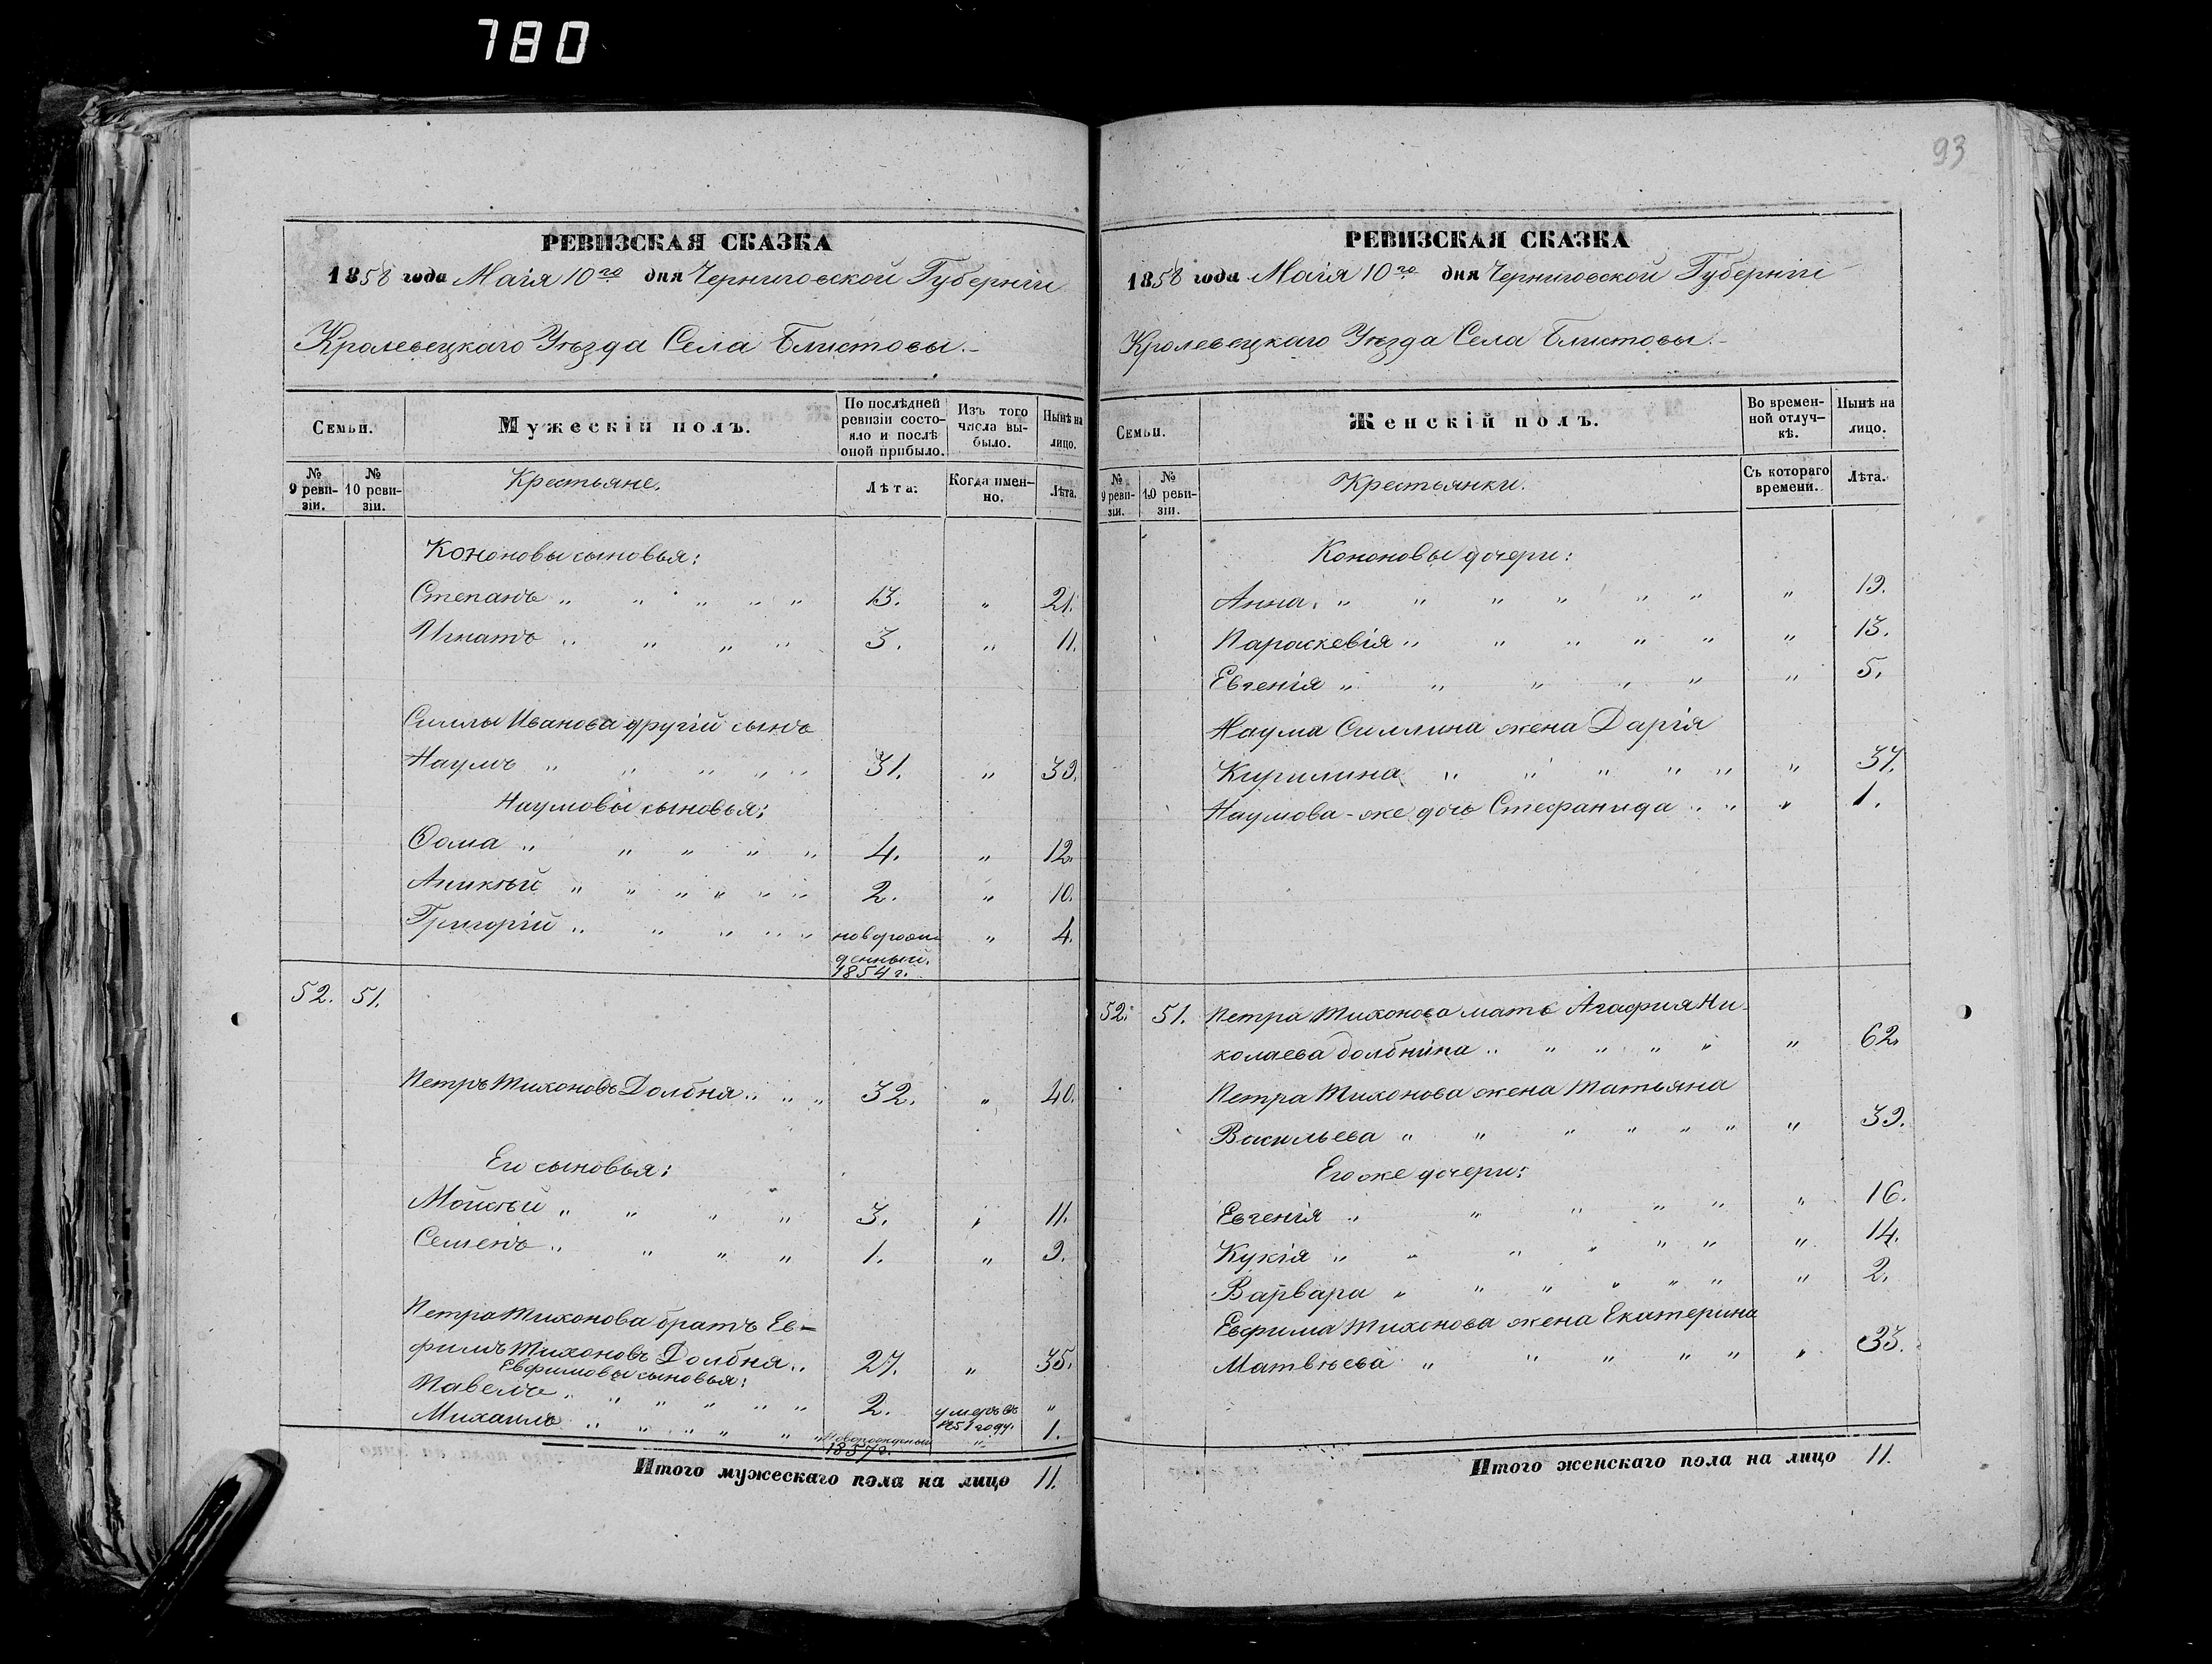 780
93
РЕВИЗСКАЯ СКАЗКА
1858 года Маія 10го дня Черниговской Губерніи
Кролевецкаго Уѣзда Села Блистовы.-
Семьи.
Мужескій полъ.
По послѣдней ревизіи состояло и послѣ оной прибыло.
Изъ того числа выбыло.
Нынѣ на лицо.
№ 9 ревизіи.
№ 10 ревизіи.
Крестьяне.
Лѣта.
Когда именно.
Лѣта.
Кононовы сыновья:
Степанъ " " " " " 13. " 21.
Игнатъ " " " " 3. " 11.
Силлы Иванова другій сынъ
Наумъ " " " " " 31. " 39.
Наумовы сыновья:
Ѳома " " " " " 4. " 12.
Аникѣй " " " " " " 2. " 10.
Григорій " " " " " новорожденный. 1854 г. " 4.
52. 51.
Петръ Тихоновъ Долбня " " " 32. " 40.
Его сыновья:
Мойсѣй " " " " 3. " 11.
Семенъ " " " " 1. " 9.
Петра Тихонова братъ Ев-
фимъ Тихоновъ Долбня " 27. " 35.
Евфимовы сыновья:
Павелъ " " " " " " 2. умеръ въ 1851 году. "
Михаилъ " " " " " новорожденный 1857 г. " 1.
Итого мужескаго пола на лицо 11.
РЕВИЗСКАЯ СКАЗКА
1858 года Маія 10го дня Черниговской Губерніи
Кролевецкаго Уѣзда Села Блистовы.-
Семьи.
Женскій полъ.
Во временной отлучкѣ.
Нынѣ на лицо.
№ 9 ревизіи.
№ 10 ревизіи.
Крестьянки.
Съ котораго времени.
Лѣта.
Кононовы дочери:
Анна " " " " " " " 19.
Параскевія " " " " " " 13.
Евгенія " " " " " " 5.
Наума Силлина жена Дарія
Кирилина " " " " " " 37.
Наумова-же дочь Стефанида " " " 1.
52. 51. Петра Тихонова мать Агафия Ни-
колаева Долбнина " " " " " " 62.
Петра Тихонова жена Татьяна
Васильева " " " " " " " 39.
Его же дочери:
Евгенія " " " " " " 16.
Кукія " " " " " " " 14.
Варвара " " " " " " " 2.
Евфима Тихонова жена Екатерина
Матвѣева " " " " " " 33.
Итого женскаго пола на лицо 11.